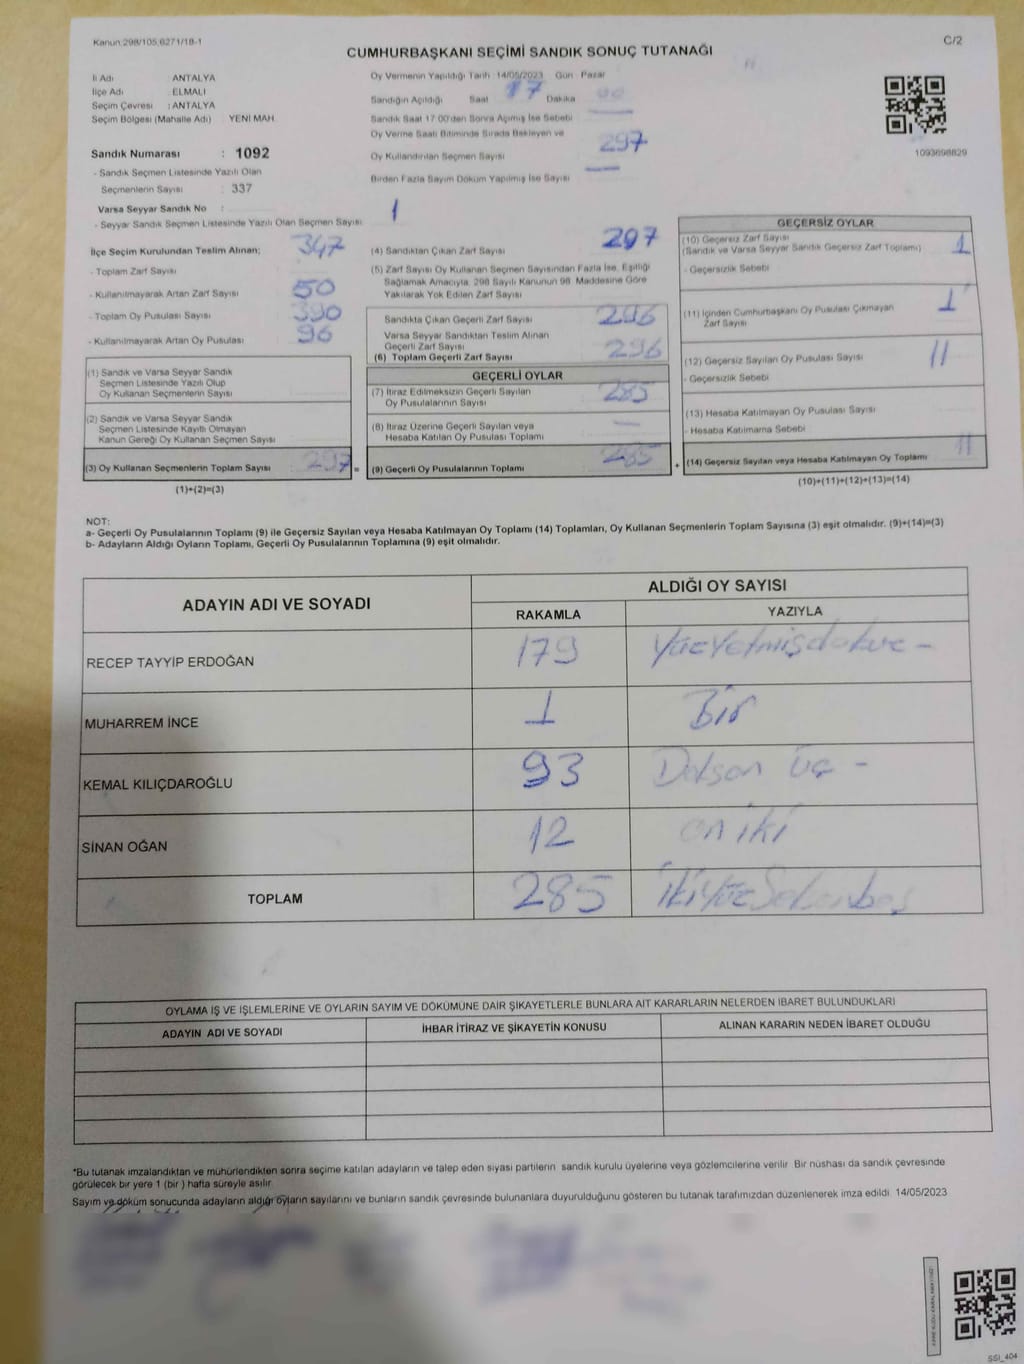 Kanun 298/105,6271/18-1
C/2
CUMHURBAŞKANI SEÇİMİ SANDIK SONUÇ TUTANAĞI
İl Adı : ANTALYA
İlçe Adı : ELMALI
Seçim Çevresi : ANTALYA
Seçim Bölgesi (Mahalle Adı) YENİ MAH.
Sandık Numarası : 1092
- Sandık Seçmen Listesinde Yazılı Olan
Seçmenlerin Sayısı : 337
Varsa Seyyar Sandık No :
- Seyyar Sandık Seçmen Listesinde Yazılı Olan Seçmen Sayısı
Oy Vermenin Yapıldığı Tarih 14/05/2023 Gün Pazar
Sandığın Açıldığı Saat 17 Dakika 00
Sandık Saat 17:00'den Sonra Açılmış İse Sebebi
Oy Verme Saati Bitiminde Sırada Bekleyen ve
Oy Kullandırılan Seçmen Sayısı 297
Birden Fazla Sayım Döküm Yapılmış İse Sayısı
1093698829
İlçe Seçim Kurulundan Teslim Alınan;
- Toplam Zarf Sayısı 347
- Kullanılmayarak Artan Zarf Sayısı 50
- Toplam Oy Pusulası Sayısı 390
- Kullanılmayarak Artan Oy Pusulası 96
(1) Sandık ve Varsa Seyyar Sandık
Seçmen Listesinde Yazılı Olup
Oy Kullanan Seçmenlerin Sayısı
(2) Sandık ve Varsa Seyyar Sandık
Seçmen Listesinde Kayıtlı Olmayan
Kanun Gereği Oy Kullanan Seçmen Sayısı
(3) Oy Kullanan Seçmenlerin Toplam Sayısı : 297 =
(1)+(2)=(3)
(4) Sandıktan Çıkan Zarf Sayısı 297
(5) Zarf Sayısı Oy Kullanan Seçmen Sayısından Fazla İse, Eşitliği
Sağlamak Amacıyla, 298 Sayılı Kanunun 98. Maddesine Göre
Yakılarak Yok Edilen Zarf Sayısı
Sandıkta Çıkan Geçerli Zarf Sayısı 296
Varsa Seyyar Sandıktan Teslim Alınan
Geçerli Zarf Sayısı
(6) Toplam Geçerli Zarf Sayısı 296
GEÇERLİ OYLAR
(7) İtiraz Edilmeksizin Geçerli Sayılan
Oy Pusulalarının Sayısı 285
(8) İtiraz Üzerine Geçerli Sayılan veya
Hesaba Katılan Oy Pusulası Toplamı —
(9) Geçerli Oy Pusulalarının Toplamı 285 +
GEÇERSİZ OYLAR
(10) Geçersiz Zarf Sayısı
(Sandık ve Varsa Seyyar Sandık Geçersiz Zarf Toplamı) 1
- Geçersizlik Sebebi
(11) İçinden Cumhurbaşkanı Oy Pusulası Çıkmayan
Zarf Sayısı 1
(12) Geçersiz Sayılan Oy Pusulası Sayısı 11
- Geçersizlik Sebebi
(13) Hesaba Katılmayan Oy Pusulası Sayısı
- Hesaba Katılmama Sebebi
(14) Geçersiz Sayılan veya Hesaba Katılmayan Oy Toplamı 11
(10)+(11)+(12)+(13)=(14)
NOT:
a- Geçerli Oy Pusulalarının Toplamı (9) ile Geçersiz Sayılan veya Hesaba Katılmayan Oy Toplamı (14) Toplamları, Oy Kullanan Seçmenlerin Toplam Sayısına (3) eşit olmalıdır. (9)+(14)=(3)
b- Adayların Aldığı Oyların Toplamı, Geçerli Oy Pusulalarının Toplamına (9) eşit olmalıdır.
ADAYIN ADI VE SOYADI
ALDIĞI OY SAYISI
RAKAMLA YAZIYLA
RECEP TAYYİP ERDOĞAN 179 Yüzyetmişdokuz -
MUHARREM İNCE 1 Bir
KEMAL KILIÇDAROĞLU 93 Doksan Üç -
SİNAN OĞAN 12 on iki
TOPLAM 285 İkiyüzSeksenbeş
OYLAMA İŞ VE İŞLEMLERİNE VE OYLARIN SAYIM VE DÖKÜMÜNE DAİR ŞİKAYETLERLE BUNLARA AİT KARARLARIN NELERDEN İBARET BULUNDUKLARI
ADAYIN ADI VE SOYADI İHBAR İTİRAZ VE ŞİKAYETİN KONUSU ALINAN KARARIN NEDEN İBARET OLDUĞU
*Bu tutanak imzalandıktan ve mühürlendikten sonra seçime katılan adayların ve talep eden siyasi partilerin sandık kurulu üyelerine veya gözlemcilerine verilir. Bir nüshası da sandık çevresinde
görülecek bir yere 1 (bir ) hafta süreyle asılır.
Sayım ve döküm sonucunda adayların aldığı oyların sayılarını ve bunların sandık çevresinde bulunanlara duyurulduğunu gösteren bu tutanak tarafımızdan düzenlenerek imza edildi. 14/05/2023
SSI_404